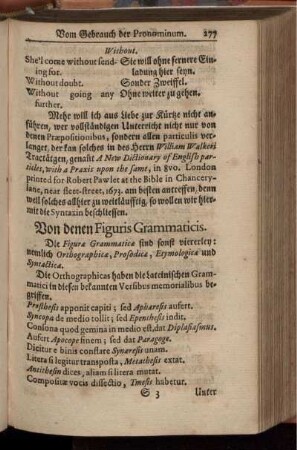 Vom Gebrauch der Pronominum. 277
Without.
She'l come without send- Sie will ohne fernere Ein-
ing for. ladung hier seyn.
Without doubt. Sonder Zweiffel.
Without going any Ohne weiter zu gehen.
further.
Mehr will ich aus Liebe zur Kürtze nicht an-
führen, wer vollständigen Unterricht nicht nur von
denen Præpositionibus, sondern allen particulis ver-
langet, der kan solches in des Herrn William Walkers
Tractätgen, genañt A New Dictionary of English par-
ticles, with a Praxis upon the same, in 8vo. London
printed for Robert Pawler at the Bible in Chancery-
lane, near fleet-street. 1673. am besten antreffen, denn
weil solches allhier zu weitläufftig, so wollen wir hier-
mit die Syntaxin beschliessen.
Von denen Figuris Grammaticis.
Die Figuræ Grammaticæ sind sonst viererley:
nemlich Orthographicæ, Prosodicæ, Etymologicæ und
Syntacticæ.
Die Orthographicas haben die Lateinischen Gram-
matici in diesen bekannten Versibus memorialibus be-
griffen.
Prosthesis apponit capiti; sed Apharesis aufert.
Syncopa de medio tollit; sed Epenthesis indit.
Consona quod gemina in medio est, dat Diplasiasmus.
Aufert Apocope finem; sed dat Paragoge.
Dicitur e binis conflare Synæresis unam.
Litera si legitur transposta, Metathesis extat.
Antithesin dices, aliam si litera mutat.
Compositæ vocis dissectio, Tmesis habetur.
S 3 Unter